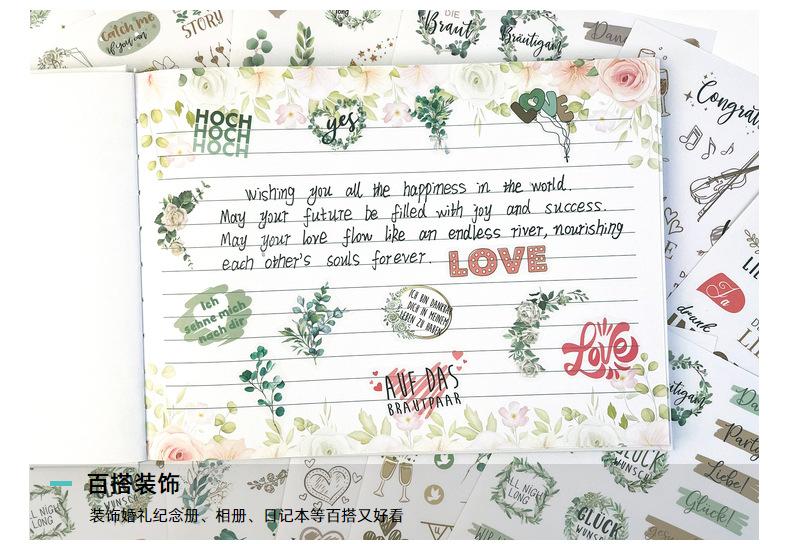 Catch me
if you can
STORY
DIE
Braut
Bräutigam
Dan
Congrat
HOCH
HOCH
HOCH
yes
LOVE
Wishing you all the happiness in the world.
May your future be filled with joy and success.
May your love flow like an endless river, nourishing
each other's souls forever.
LOVE
Ich
sehne mich
nach dir
ICH BIN DANKBAR
DICH IN MEINEM
LEBEN ZU HABEN
Love
AUF DAS
BRAUTPAAR
Ja
drauf
Bräutigam
Da
Party
Liebe!
Glück!
ALL NIGHT
LONG
GLÜCK
WUNSCH
GLÜCK
WUNSCH
百搭装饰
装饰婚礼纪念册、相册、日记本等百搭又好看